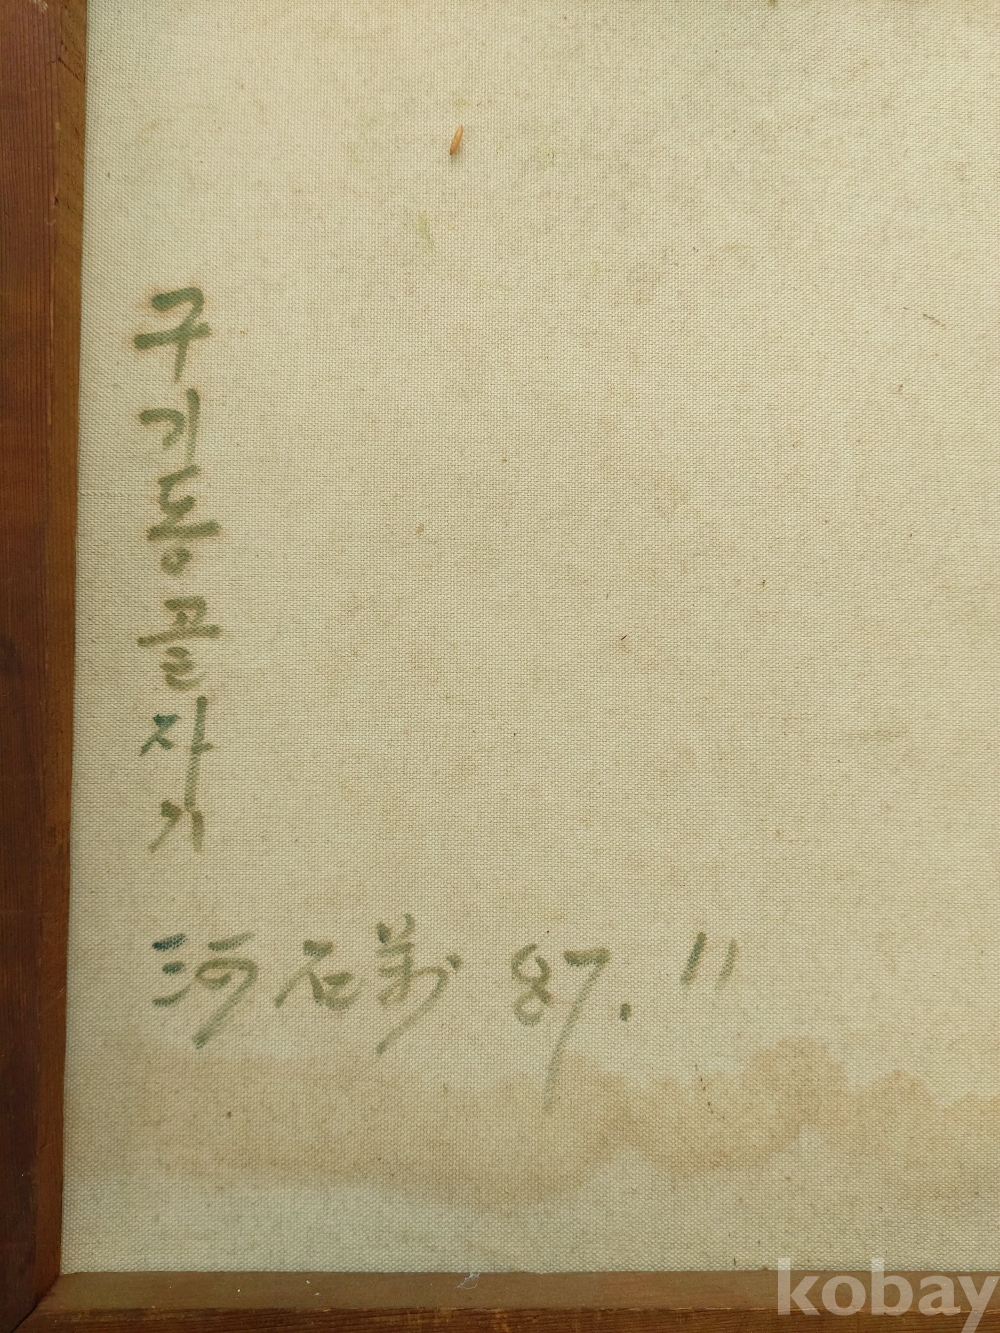 구기동골자기
河石 87. 11
kobay